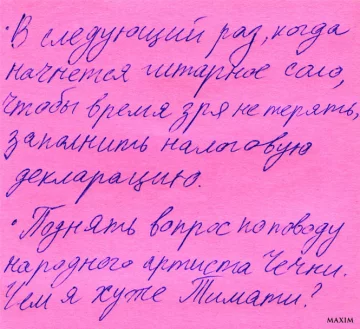 • В следующий раз, когда
начнется гитарное соло,
чтобы время зря не терять,
заполнить налоговую
декларацию.
• Поднять вопрос по поводу
народного артиста Чечни.
Чем я хуже Тимати?
MAXIM